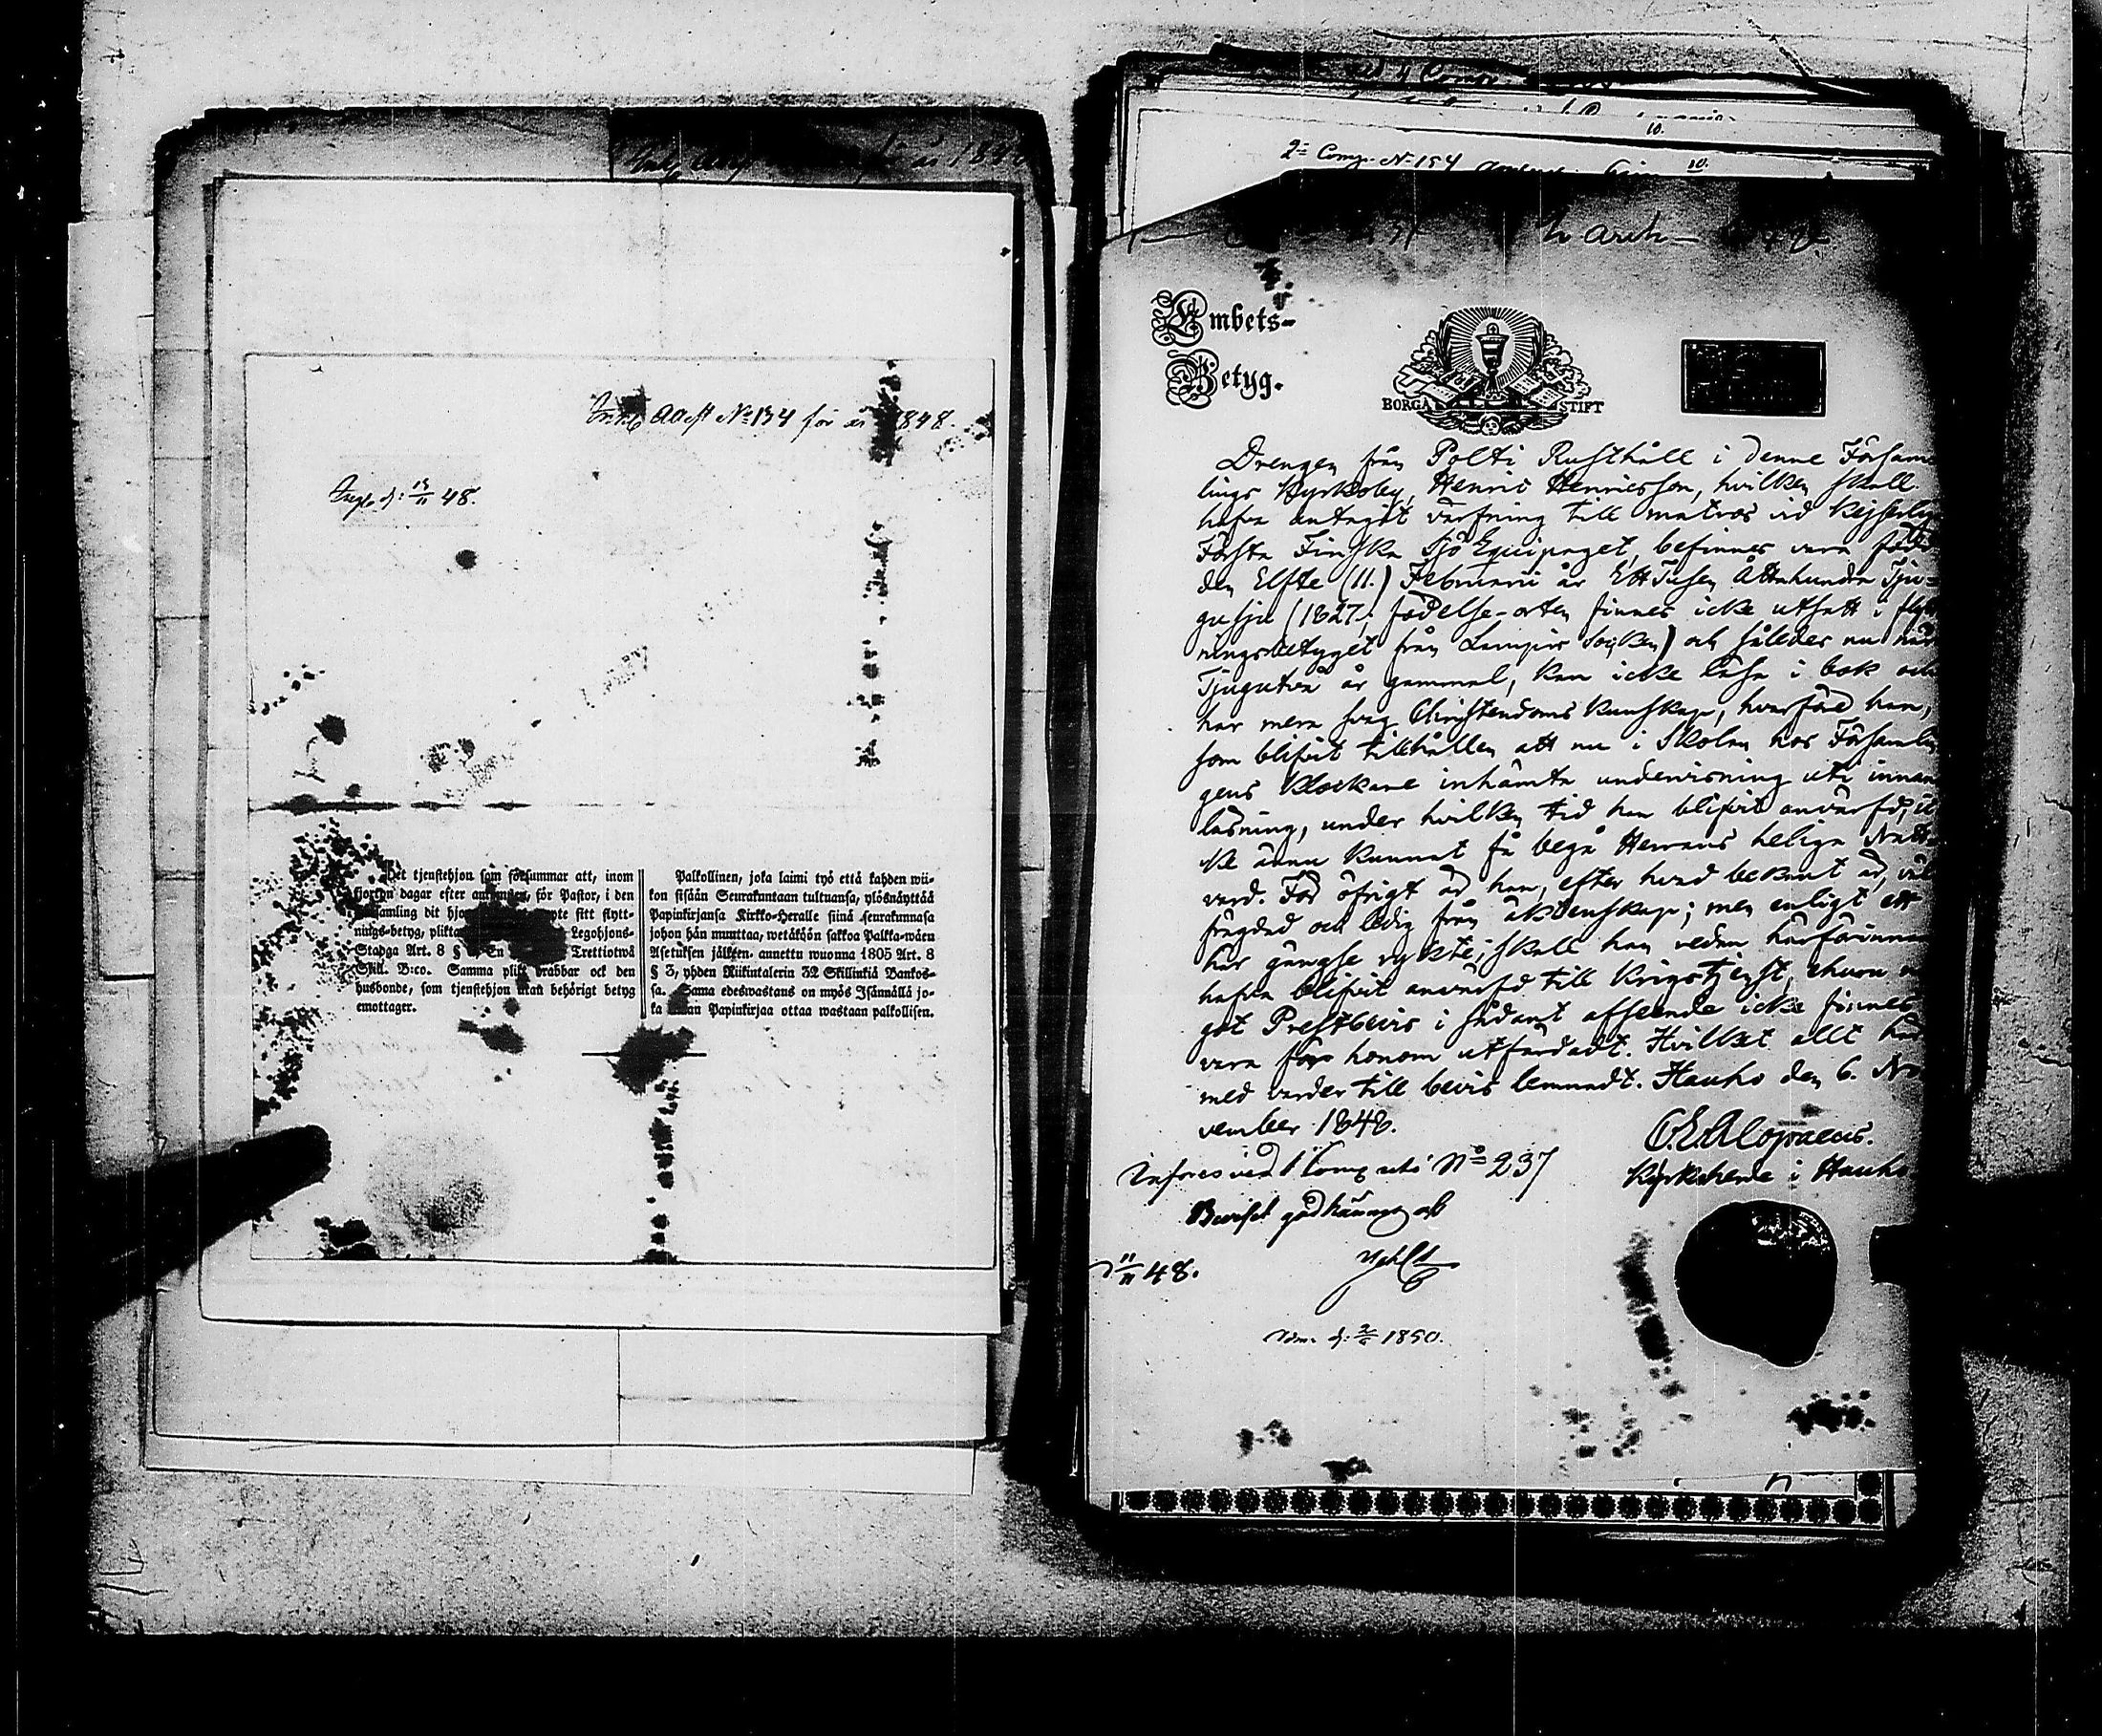 för år 18
för år 1848.
Ingk. d: 13/11 48.
Det tjenstehjon som försummar att, inom
fjorton dagar efter , för Pastor, i den
samling dit hjon te sitt flytt-
nings-betyg, plikta Legohjons-
Stadga Art. 8 § En Trettiotwå
Skill. B:co. Samma plikt drabbar ock den
husbonde, som tjenstehjon utan behörigt betyg
emottager.
Palkollinen, joka laimi työ että kahden wii-
kon sisään Seurakuntaan tultuansa, ylösnäyttää
Papinkirjansa Kirkko-Heralle siinä seurakunnasa
johon hän muuttaa, wetäköön sakkoa Palkka-wäen
Asetuksen jälkeen, annettu wuonna 1805 Art. 8
§ 3, yhden Riikintalerin 32 Skillinkiä Bankos-
sa. Sama edeswastaus on myös Isännällä jo-
ka ilman Papinkirjaa ottaa wastaan palkollisen.
2:a Comp. N:o 154
10.
10.
Embets-
Betyg.
BORGÅ STIFT
Drengen från Polti Rusthåll i denne Försam
lings Kyrkoby, Henric Henricsson, hvilken skall
hafva antagit värfning till matros vid Kejserliga
Första Finska Sjö Equipaget, befinnes vara född
den Elfte (11.) Februarii år Ett Tusen Åttahundra Tju-
gusju (1827; födelse-orten finnes icke utsatt i flytt
ningsbetyget från Lampis Socken) och således nu när
Tjugutvå år gammal, kan icke läsa i bok och
har mera svag Christendoms kunskap, hvarföre han,
som blifvit tillhållen att nu i Skolan hos Församlin
gens Klockare inhämta undervisning uti innan
läsning, under hvilken tid han blifvit anvärfd, ic
ke ännu kunnat få begå Herrans heliga Natt-
vard. För öfrigt är han, efter hvad bekant är, väl
frägdad och ledig från äktenskap; men enligt ett
här gängse rykte, skall han redan härförinnan
hafva blifvit anvärfd till Krigstjenst, ehuru nå
got Prestbevis i sådant afseende icke finnes
vara för honom utfärdadt. Hvilket allt här
med varder till bevis lemnadt. Hauho den 6. No
vember 1848.
C. E. Alopaeus.
Kyrkoherde i Hauho
Införes ved 1 Comp uti N:o 237
Beviset godkännes af
d 11/11 48.
1850.